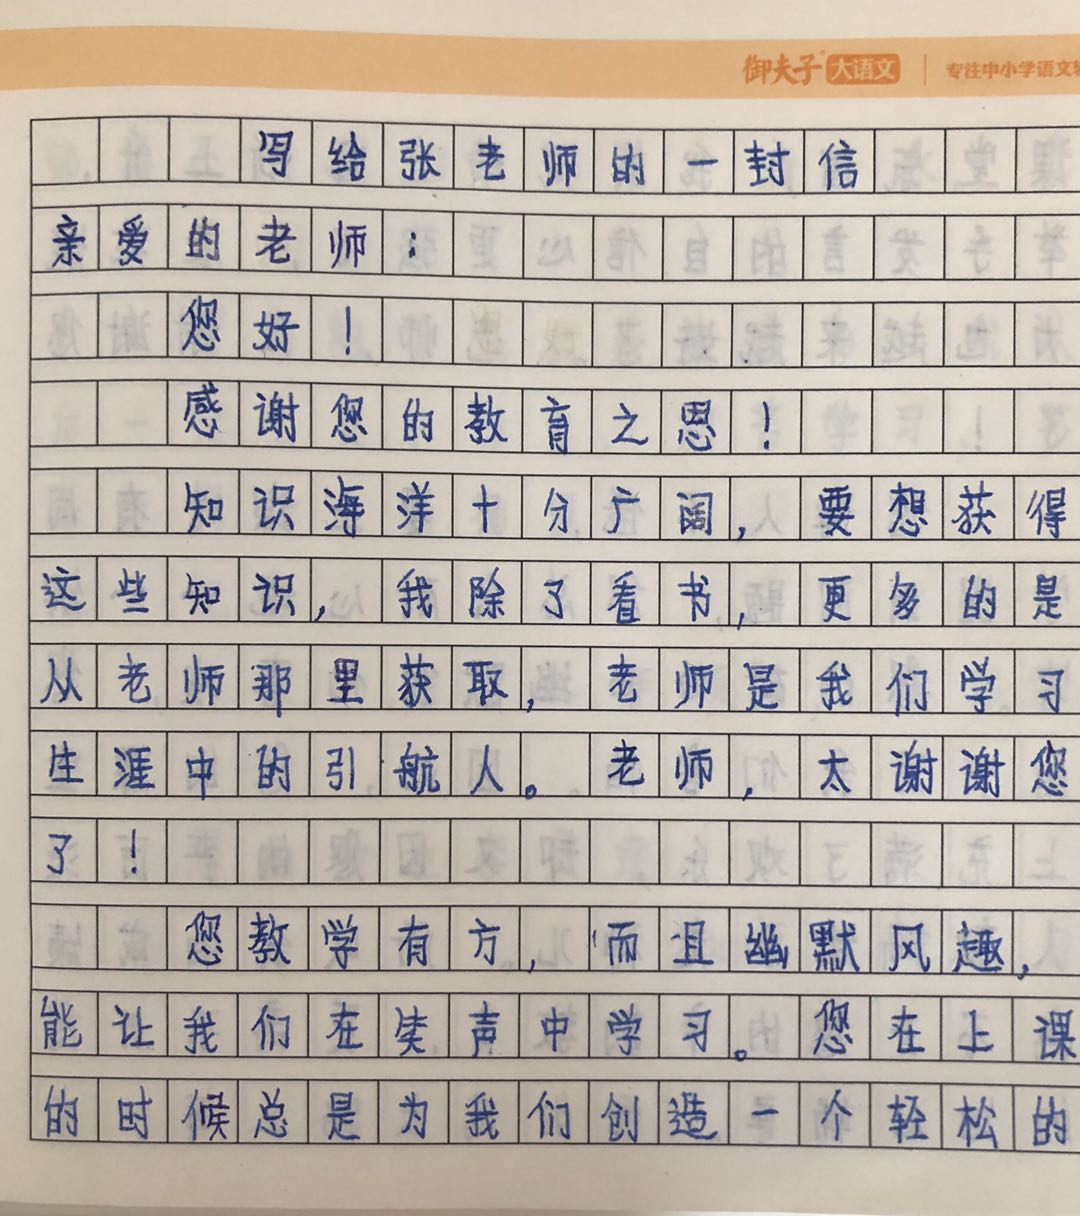 御夫子 大语文 专注中小学语文
写给张老师的一封信
亲爱的老师：
您好！
感谢您的教育之恩！
知识海洋十分广阔，要想获得
这些知识，我除了看书，更多的是
从老师那里获取，老师是我们学习
生涯中的引航人。老师，太谢谢您
了！
您教学有方，而且幽默风趣，
能让我们在笑声中学习。您在上课
的时候总是为我们创造一个轻松的